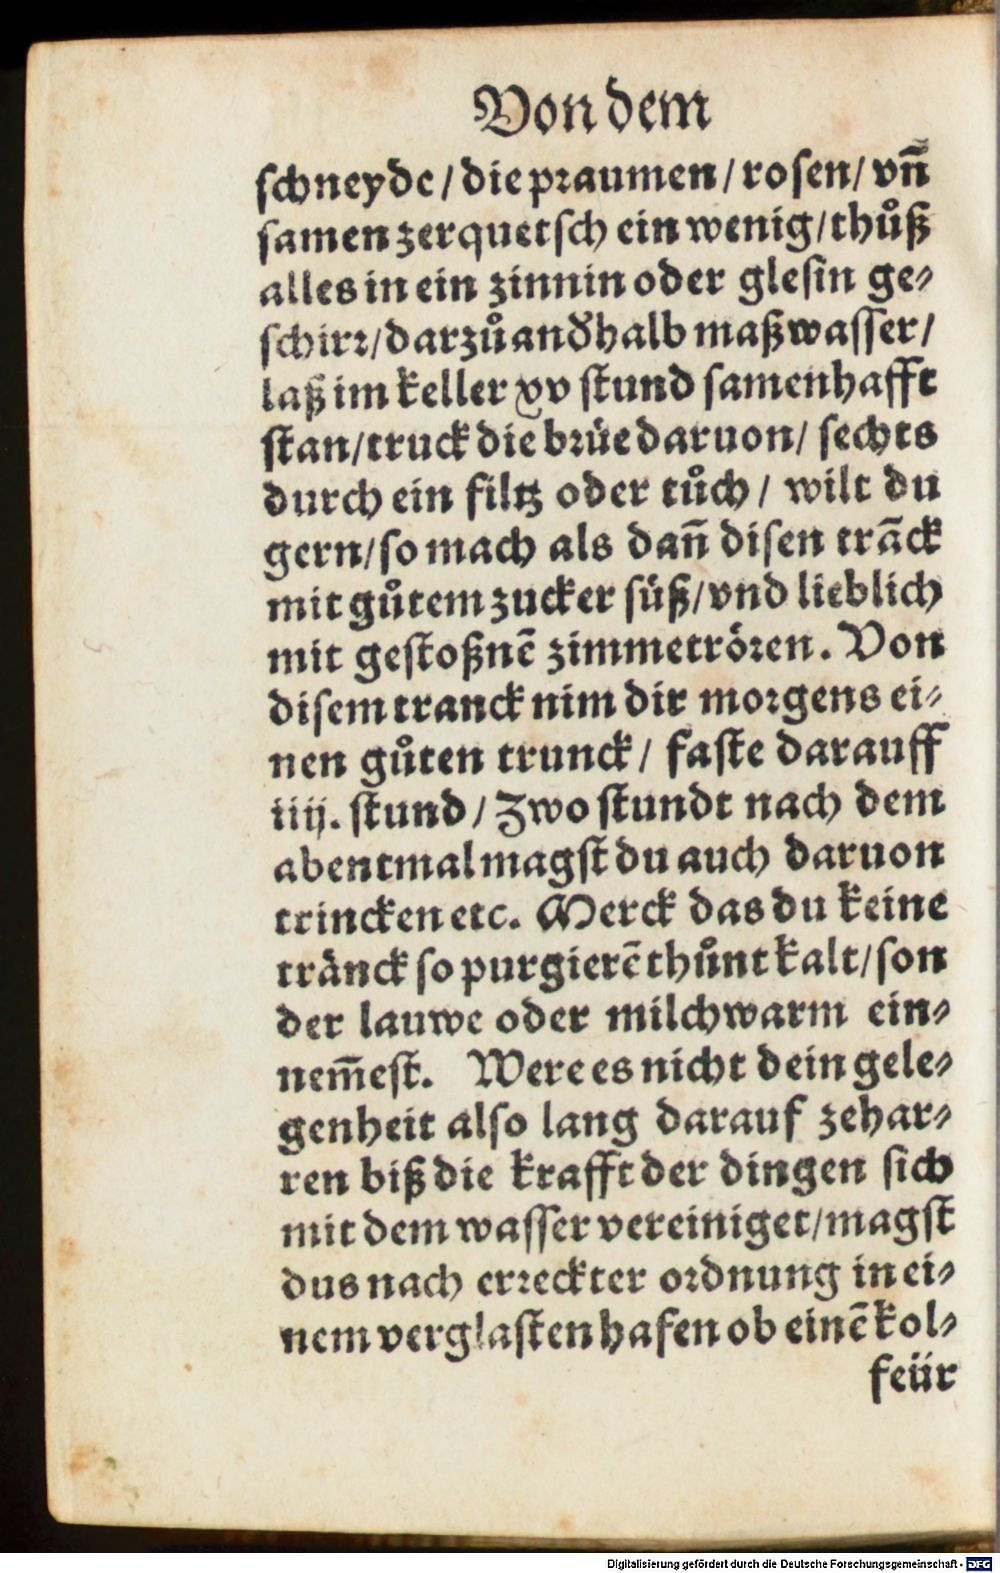 Von dem
schneyde / die praumen / rosen / vñ
samen zerquetsch ein wenig / thůß
alles in ein zinnin oder glesin ge⸗
schirr / darzů andhalb maß wasser /
laß im keller xv stund samenhafft
stan / truck die brüe daruon / sechts
durch ein filtz oder tůch / wilt du
gern / so mach als dañ disen trãck
mit gůtem zucker süß / vnd lieblich
mit gestoßnẽ zimmetrören. Von
disem tranck nim dir morgens ei⸗
nen gůten trunck / faste darauff
iiij. stund / Zwo stundt nach dem
abentmal magst du auch daruon
trincken etc. Merck das du keine
tränck so purgierẽ thůnt kalt / son
der lauwe oder milchwarm ein⸗
nem̃est. Were es nicht dein gele⸗
genheit also lang darauf zehar⸗
ren biß die krafft der dingen sich
mit dem wasser vereiniget / magst
dus nach erreckter ordnung in ei⸗
nem verglasten hafen ob einẽ kol⸗
feür
Digitalisierung gefördert durch die Deutsche Forschungsgemeinschaft - DFG